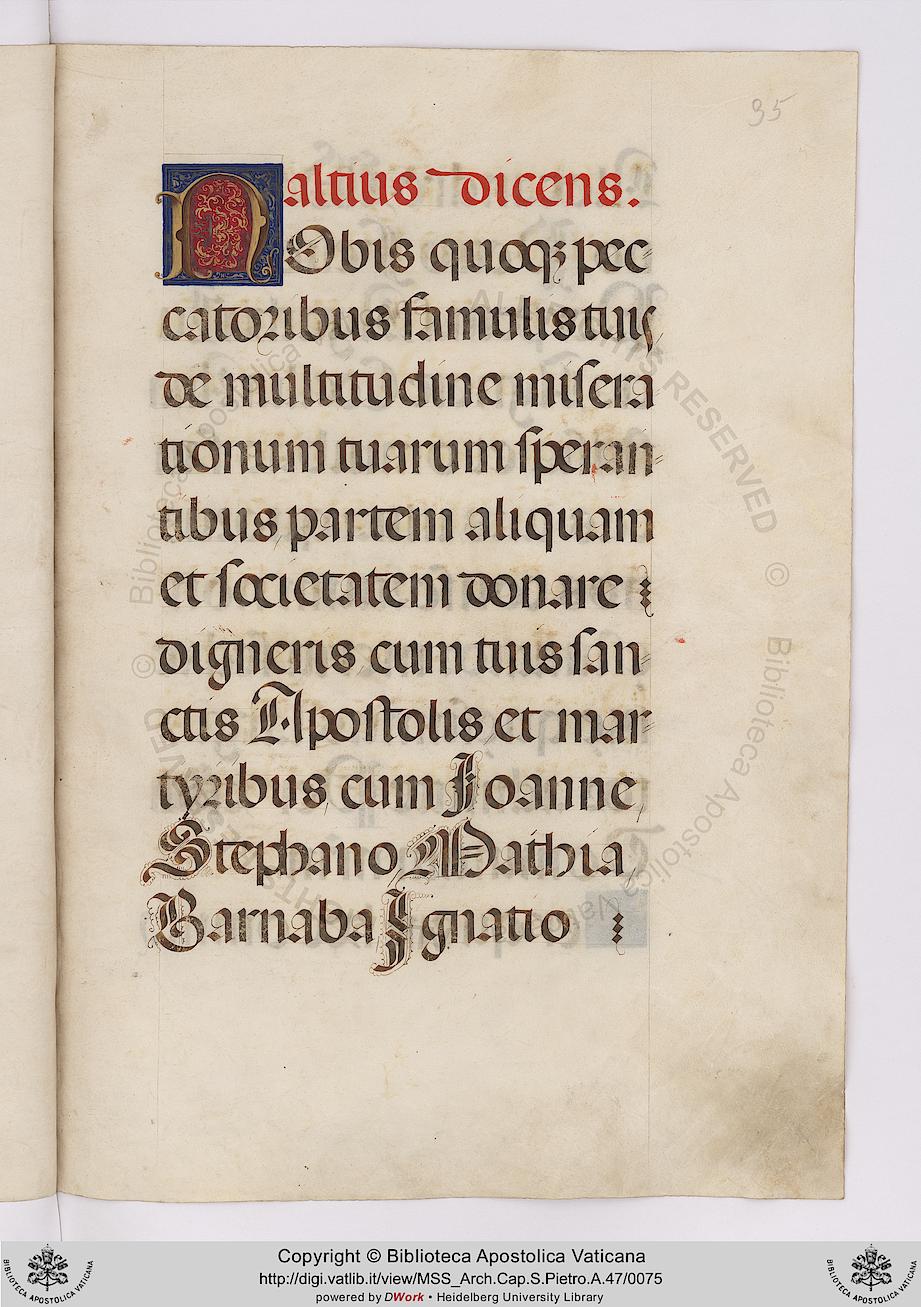 35
altius dicens.
NObis quoqꝫ pec-
catoribus famulis tuis,
de multitudine misera
tionum tuarum speran-
tibus, partem aliquam
et societatem donare
digneris cum tuis san-
ctis Apostolis et mar-
tyribus, cum Joanne,
Stephano, Mathia,
Barnaba, Ignatio
Copyright © Biblioteca Apostolica Vaticana
http://digi.vatlib.it/view/MSS_Arch.Cap.S.Pietro.A.47/0075
powered by DWork • Heidelberg University Library
BIBLIOTECA APOSTOLICA VATICANA
BIBLIOTECA APOSTOLICA VATICANA